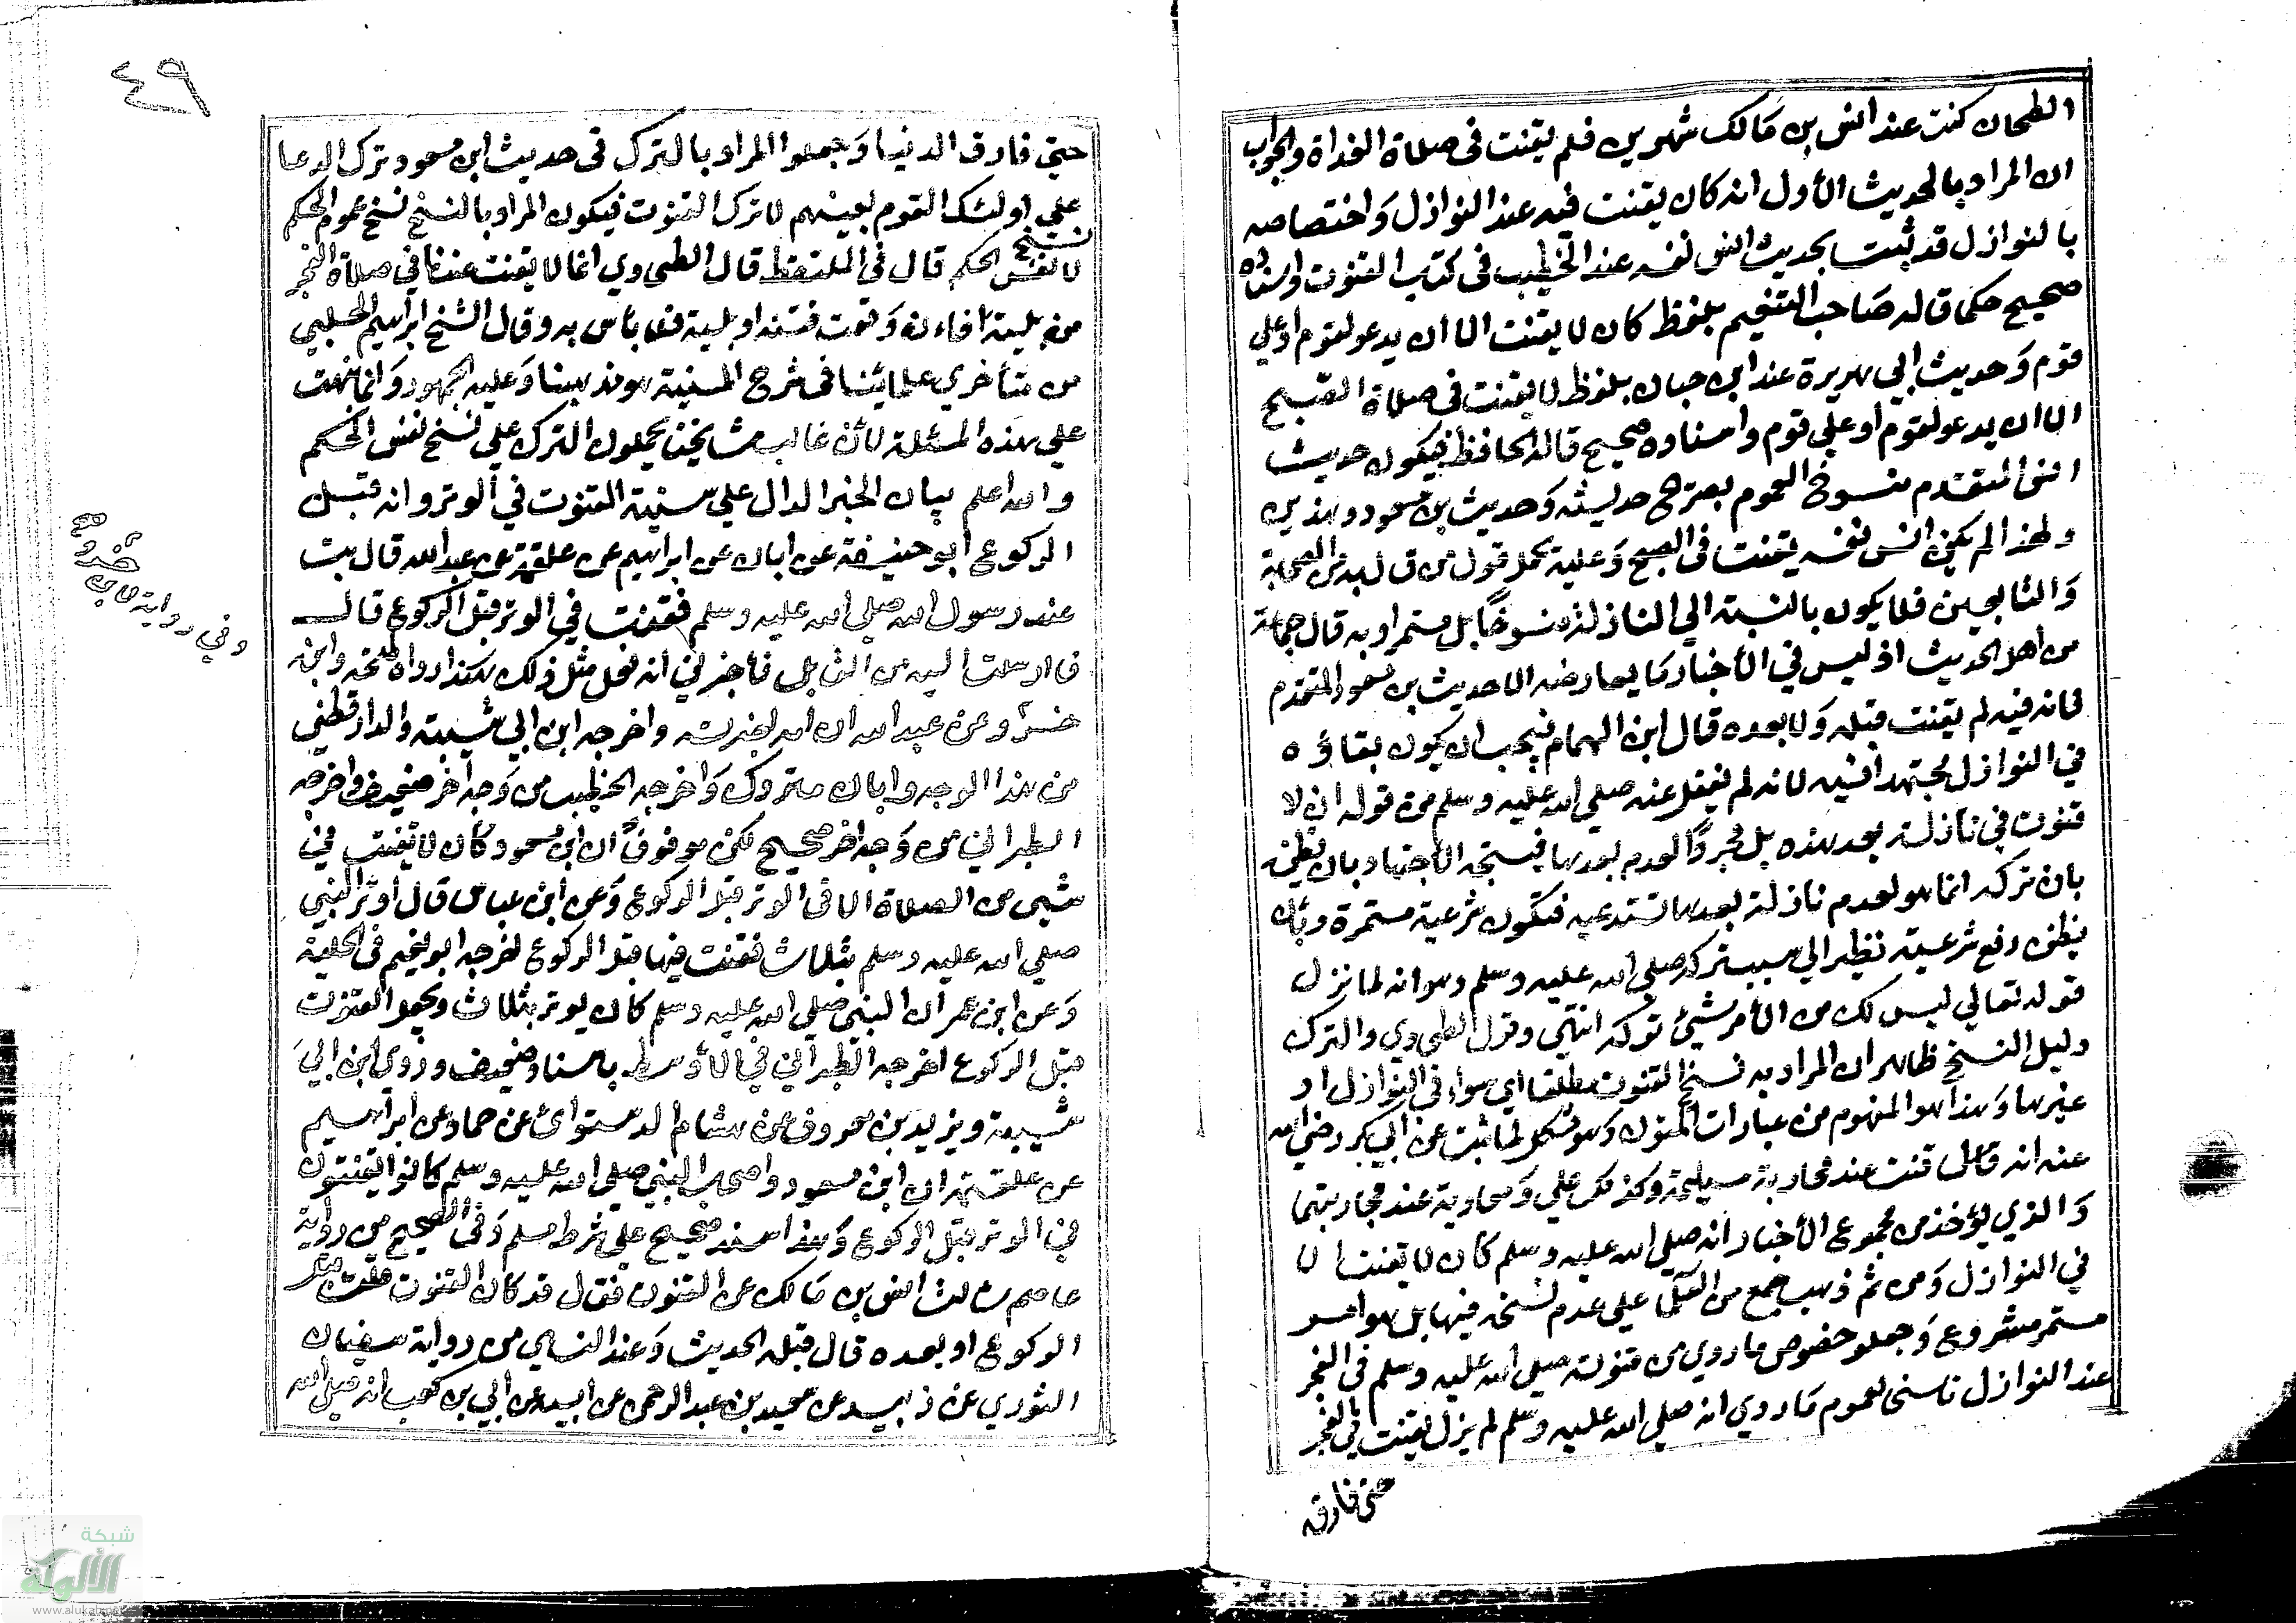 الطحان كنت عند انس بن مَالك شهرين فلم يقنت فى صلاة الغداة والجواب
ان المراد بالحديث الأول انه كان يقنت فيه عند النوازل وَاختصاصه
بالنوازل قد ثبت بحديث انس نفسه عند الخطيب فى كتاب القنوت واسناده
صحيح حكى قاله صَاحب التنقيح بلفظ كان لا يقنت الا ان يدعو لقوم او على
قوم وَحديث ابي هريرة عند ابن حبان بلفظ لا يقنت فى صلاة الصّبح
الا ان يدعو لقوم او على قوم واسناده صحيح قاله الحافظ فيكون حديث
انس المتقدم منسوخ العموم بصرح حديثه وَحديث بن مسعود وهذين
ولهذا لم يكن انس نفسه يقنت فى الصبح وَعليه يحمل قول من قال به من الصحابة
وَالتابعين فلا يكون بالنسبة الي النازلة منسوخًا بل مستمرا وبه قال جماعة
من اهل الحديث اذ ليس في الأخبار مَا يعارضه الا حديث بن مسعود المتقدم
فانه فيه لم يقنت قبله وَلا بعده قال ابن الهمام فيجب ان يكون بقاؤه
في النوازل مجتهدا فيه لانه لم ينقل عنه صلي الله عليه وسلم من قوله ان لا
قنوت في نازلة بعد هذه بل مجردًا لعدم بعدها فيتجه الأجتهاد بان يظن
بان تركه انما هو لعدم نازلة بعدها تستدعيه فتكون شرعية مستمرة وبان
يظن رفع شرعيته نظرا الي سبب تركه صلي الله عليه وسلم وهو انه لما نزل
قوله تعالي ليس لك من الأمر شيئ تركه انتهي وقول الطحاوي والترك
دليل النسخ ظاهر ان المراد به نسخ القنوت مطلقا اي سواء فى النوازل او
غيرها وَهذا هو المفهوم من عبارات المتون وَهو مشكل لما ثبت عن ابي بكر رضي الله
عنه انه قال قنت عند محاربة مسيلمة وكذلك علي وَمعاوية عند محاربتهما
وَالذي يؤخذ من مجموع الأخبار انه صلي الله عليه وسلم كان لا يقنت الا
في النوازل وَمن ثم ذهب جمع من العلما علي عدم نسخه فيها بل هو امر
مستمر مشروع وَجعلو خصوص ما روي من قنوته صلي الله عليه وسلم فى الفجر
عند النوازل ناسخى لعموم مَا روي انه صلي الله عليه وسلم لم يزل يقنت في الفجر
حتى فارق
٤٩
حتي فارق الدنيا وَجعلوا المراد بالترك فى حديث ابن مسعود ترك الدعا
علي اولئك القوم بعينهم لا ترك القنوت فيكون المراد بالنسخ نسخ عموم الحكم
لا نسخ نفس الحكم قال فى الملتقط قال الطحاوي انما لا يقنت عندنا في صلاة الفجر
من بلية فاءن وَقعت فتنة او بلية فلا بأس به وقال الشيخ ابراهيم الحلبي
من متأخري علمائنا فى شرح المنية هو مذهبنا وَعليه الجمهور وَانما نبهت
علي هذه المسئلة لأن غالب مشايخنا يحملون الترك علي نسخ نفس الحكم
والله اعلم بيان الخبر الدال علي سنية القنوت في الوتر وانه قبل
الركوع ابو حنيفة عن ابان عن ابراهيم عن علقمة عن عبد الله قال بت
عند رسول الله صلي الله عليه وسلم فقنت في الوتر قبل الركوع قال
فارسلت اليه من القابل فأخبرني انه فعل مثل ذلك هكذا رواه طلحة وابن
خسرو عن عبد الله ان امه اخبرته واخرجه ابن ابي شيبة والدارقطني
من هذا الوجه وابان متروك وَاخرجه الخطيب من وَجه اخر ضعيف واخرجه
الطبراني من وَجه اخر صحيح لكن موقوفً ان ابن مسعود كان لا يقنت في
شيى من الصلاة الا فى الوتر قبل الركوع وَعن ابن عباس قال اوتر النبي
صلي الله عليه وسلم بثلاث فقنت فيها قبل الركوع اخرجه ابو نعيم فى الحلية
وَعن ابن عمر ان النبي صلي الله عليه وسلم كان يوتر بثلاث ويجعل القنوت
قبل الركوع اخرجه الطبراني في الأوسط باسناد ضعيف وروي ابن ابي
شيبة ويزيد بن هرون عن هشام الدستوائ عن حماد عن ابراهيم
عن علقمة ان ابن مسعود واصحاب النبي صلي الله عليه وسلم كانوا يقنتون
في الوتر قبل الركوع وَهذا سند صحيح علي شرط مسلم وَفى الصحيح من رواية
عاصم سالت انس بن مَالك عن القنوت فقال قد كان القنوت قلت قبل
الركوع او بعده قال قبله الحديث وَعند النساي من رواية سفيان
الثوري عن زبيد عن سعيد بن عبد الرحمن عن ابيه عن ابي بن كعب انه صلي الله
وفي رواية لابن خسرو مع
شبكة
الألوكة
www.alukah.net